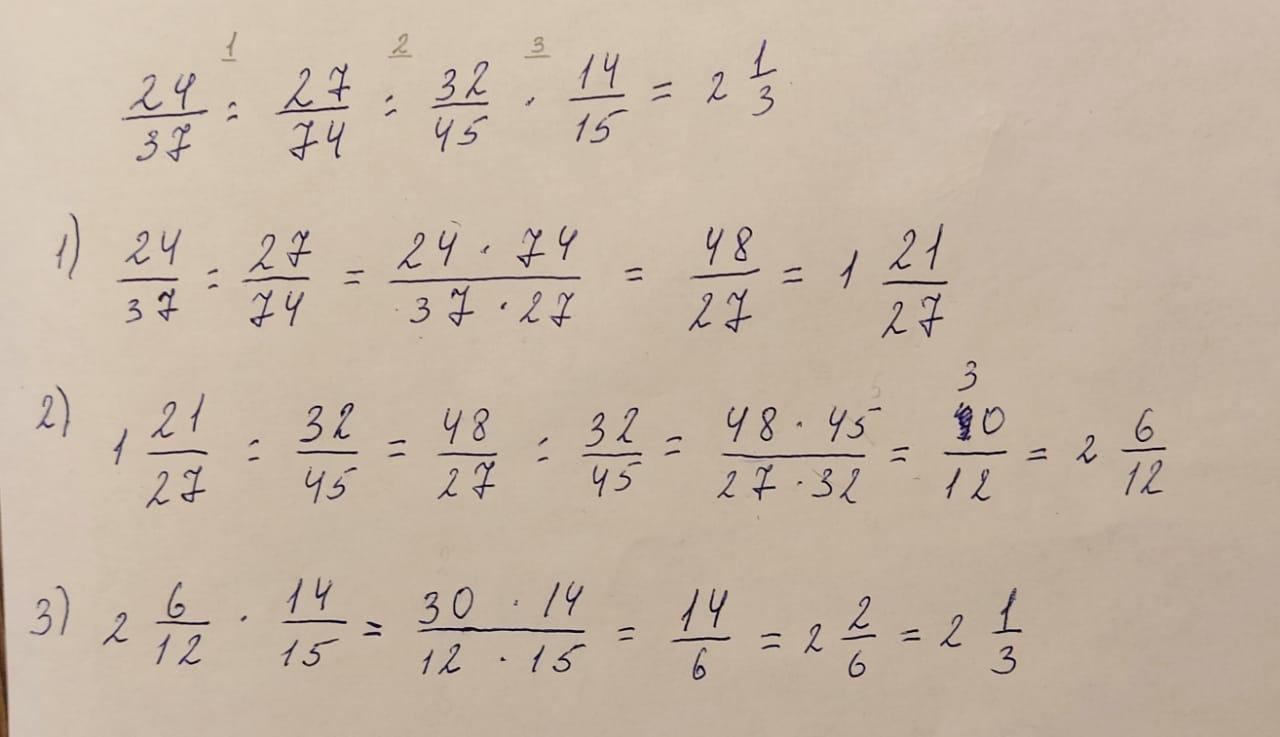 1 2 3
24/37 : 27/74 : 32/45 · 14/15 = 2 1/3
1) 24/37 : 27/74 = 24 · 74/37 · 27 = 48/27 = 1 21/27
2) 1 21/27 : 32/45 = 48/27 : 32/45 = 48 · 45/27 · 32 = 30/12 = 2 6/12
3) 2 6/12 · 14/15 = 30 · 14/12 · 15 = 14/6 = 2 2/6 = 2 1/3